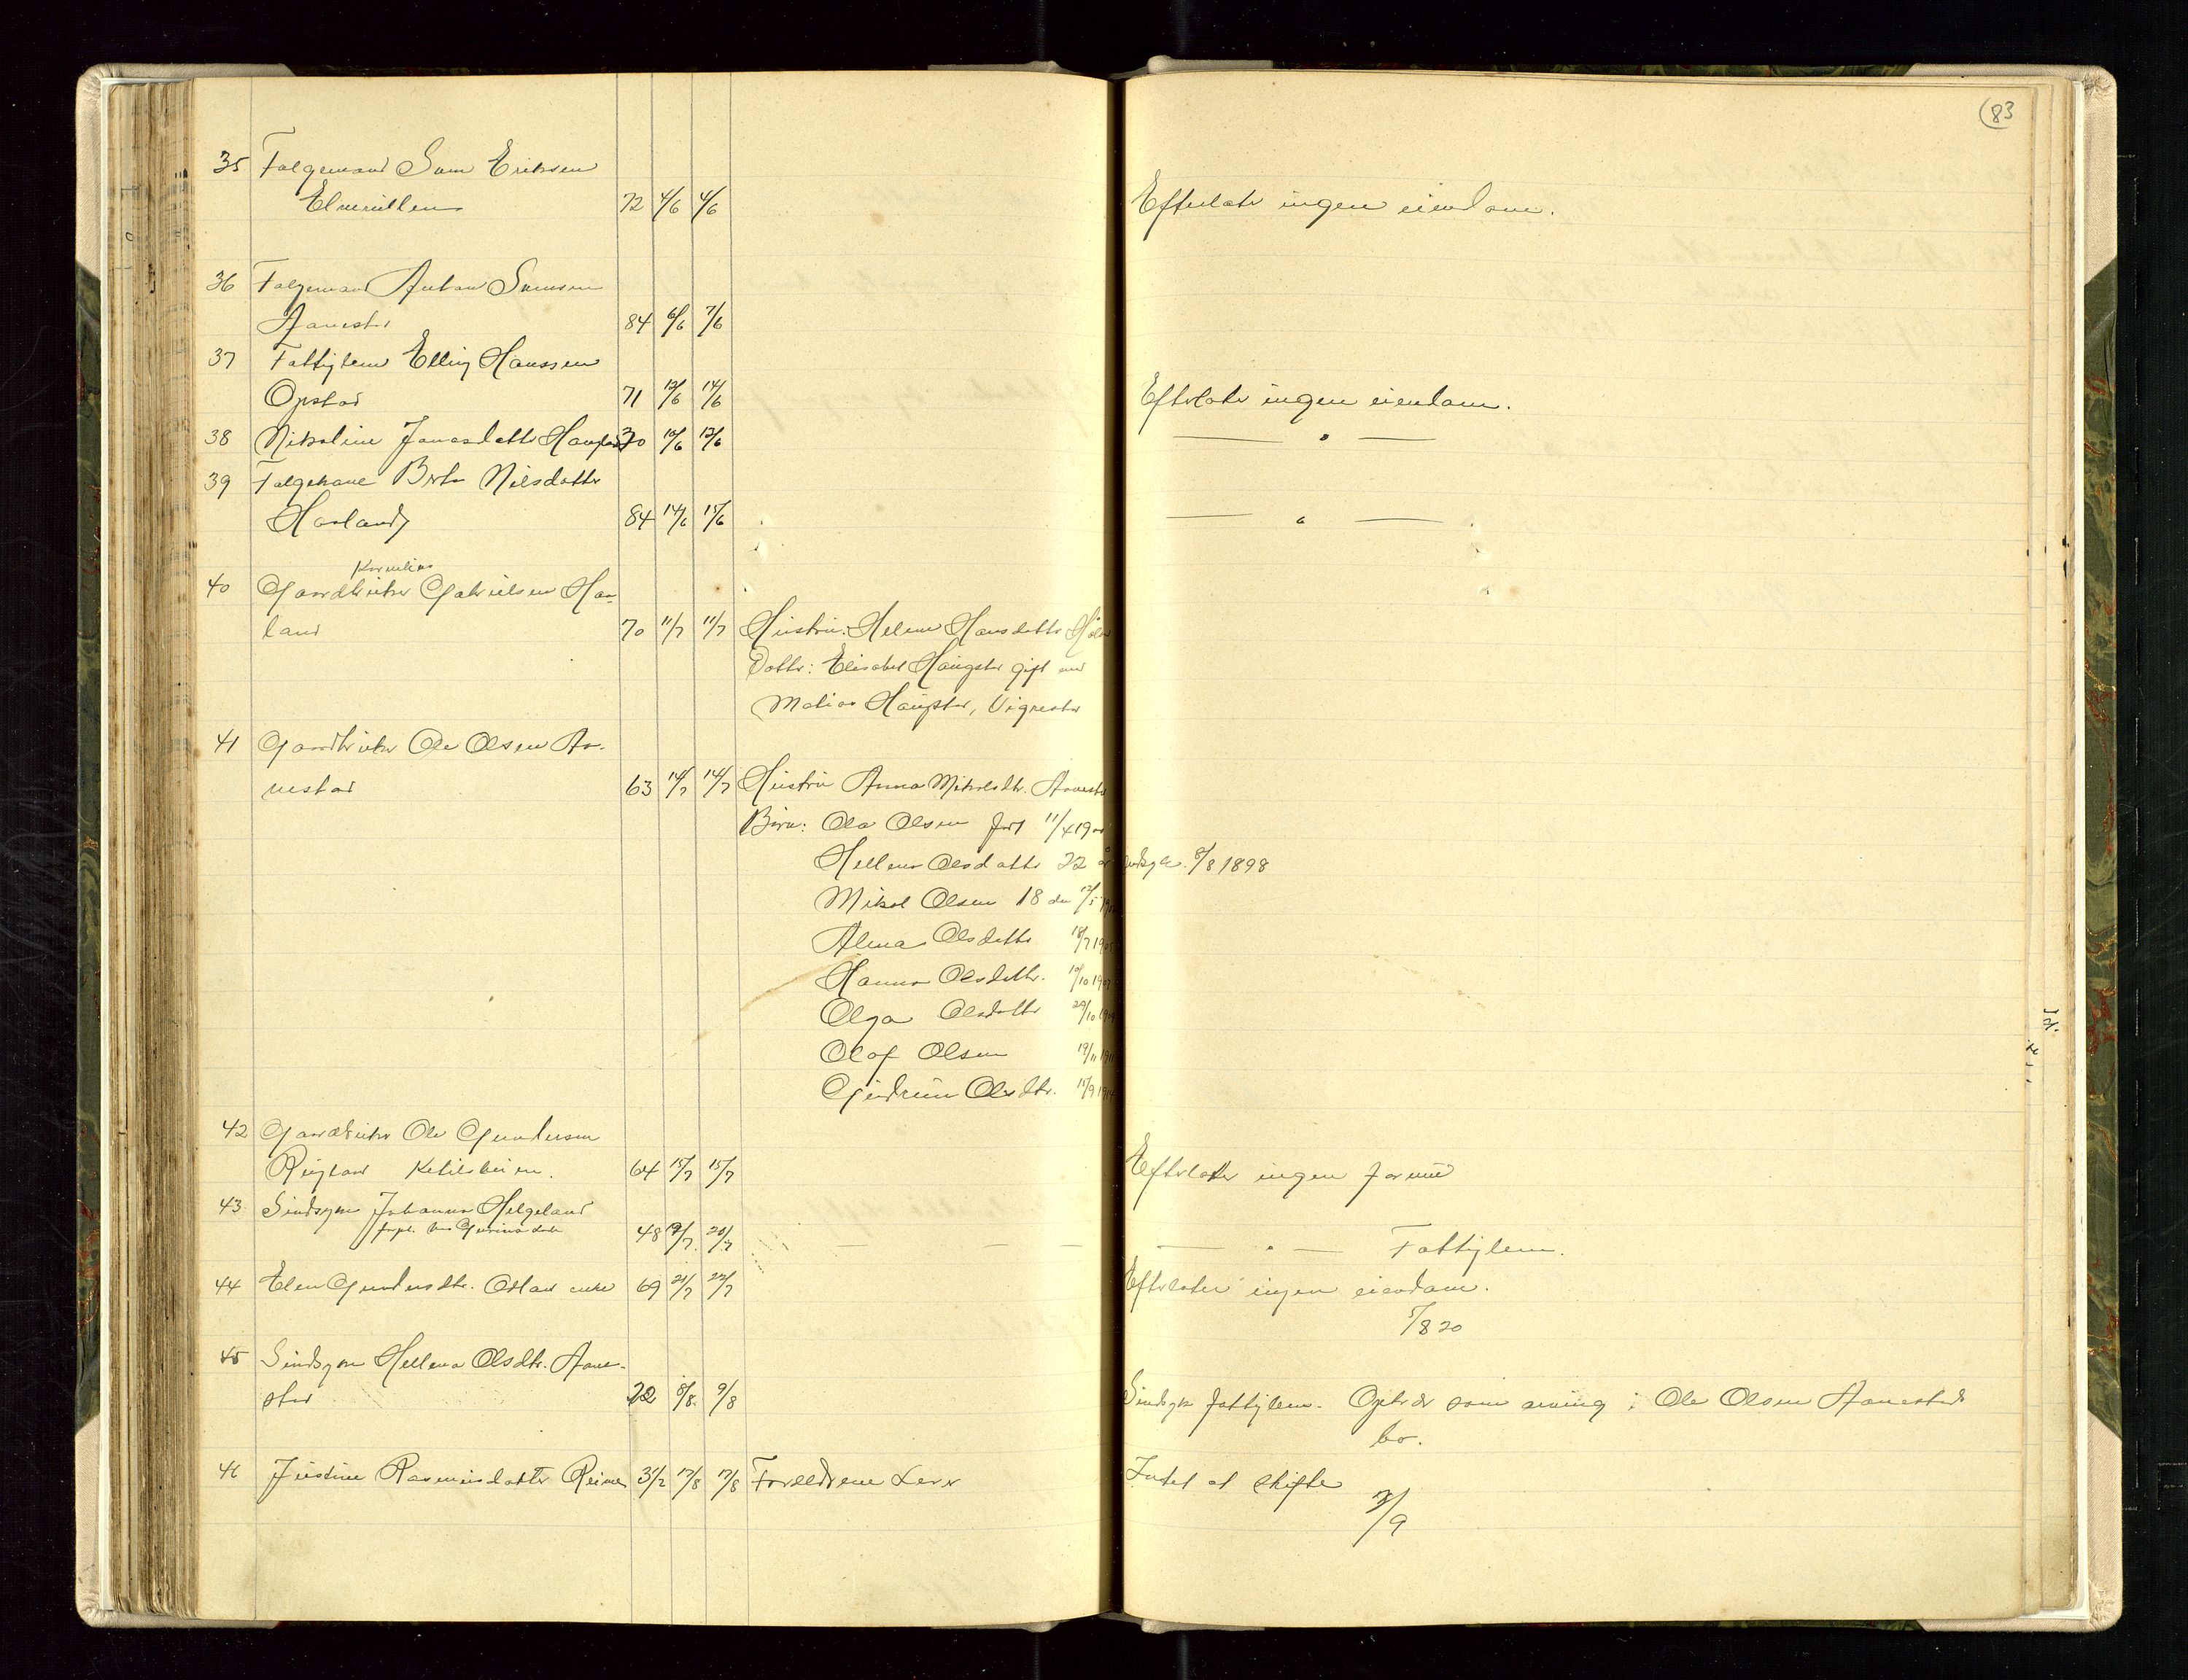 83
35 Folgemand Sven Eriksen
72 4/6 4/6 Efterlater ingen eiendom.
36 Folgemand Anton Svensen
Aanestad 84 6/6 7/6
37 Fattiglem Elling Hanssen
Opstad 71 12/6 14/6 Efterlater ingen eiendom.
38 Nikoline Jonasdatter 30 10/6 12/6 — " —
39 Folgekone Berta Nilsdatter
Haaland 84 14/6 15/6 — " —
Kornelius
40 Gaardbruker Gabrielsen Haa-
land 70 11/7 11/7 Hustru: Helene Hansdatter
Datter: Elisabet Haugstad gift med
Matias Haugstad, Vigrestad
41 Gaardbruker Ole Olsen Aa-
nestad 63 14/7 14/7 Hustru Anna Mikalsdtr. Aanestad
Børn: Ola Olsen født 11/4 19
Hellena Olsdatter 22 år sindssyk. 8/8 1898
Mikal Olsen 18 år 12/5
Alma Olsdatter 18/7 1905
Hanna Olsdatter. 10/10 1907
Olga Olsdatter 29/10 1909
Olaf Olsen 19/11 1911
Gudrun Olsdtr. 15/9 1914
42 Gaardbruker Ole Gundersen
64 15/7 15/7 Efterlater ingen formue
43 Sindsyk Johanna Helgeland
48 19/7 20/7 — " — Fattiglem.
44 Elen Gundersdtr. enke 69 21/7 22/7 Efterlater ingen eiendom.
5/8 20
45 Sindsyk Hellena Olsdtr. Aane-
stad 22 8/8 9/8 Sindsyk fattiglem. Optrær som arving i Ole Olsen Aanestads
bo.
46 Justine Rasmusdatter Reime 3 1/2 17/8 17/8 Forældrene lever Intet at skifte
7/9